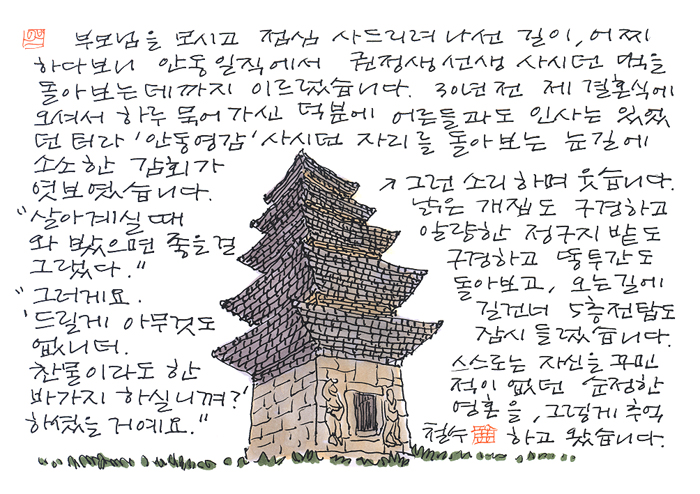 부모님을 모시고 점심 사드리려 나선 길이, 어찌
하다보니 안동일직에서 권정생선생 사시던 댁을
돌아보는데까지 이르렀습니다. 30년전 제 결혼식에
오셔서 하루 묵어가신 덕분에 어른들과도 인사는 있었
던 터라 '안동영감' 사시던 자리를 돌아보는 눈길에
소소한 감회가
엿보였습니다.
"살아계실 때
와 봤으면 좋을걸
그랬다."
"그러게요.
'드릴게 아무것도
없니더.
찬물이라도 한
바가지 하실니껴?'
하셨을 거예요."
↗ 그런 소리 하며 웃습니다.
낡은 개집도 구경하고
알량한 정구지 밭도
구경하고 똥투간도
돌아보고, 오는길에
길건너 5층전탑도
잠시 들렀습니다.
스스로는 자신을 꾸민
적이 없던 순정한
영혼을, 그렇게 추억
하고 왔습니다.
철수